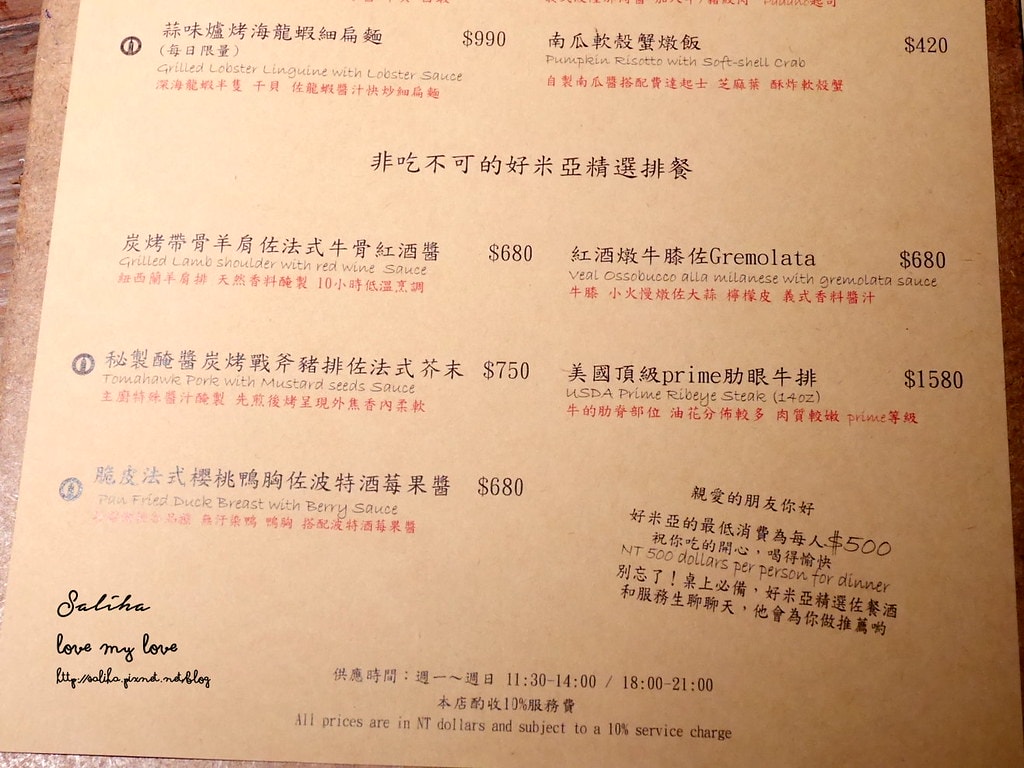 蒜味爐烤海龍蝦細扁麵 $990
(每日限量)
Grilled Lobster Linguine with Lobster Sauce
深海龍蝦半隻 干貝 佐龍蝦醬汁快炒細扁麵
南瓜軟殼蟹燉飯 $420
Pumpkin Risotto with Soft-shell Crab
自製南瓜醬搭配費達起士 芝麻葉 酥炸軟殼蟹
非吃不可的好米亞精選排餐
炭烤帶骨羊肩佐法式牛骨紅酒醬 $680
Grilled Lamb shoulder with red wine Sauce
紐西蘭羊肩排 天然香料醃製 10小時低溫烹調
紅酒燉牛膝佐Gremolata $680
Veal Ossobucco alla milanese with gremolata sauce
牛膝 小火慢燉佐大蒜 檸檬皮 義式香料醬汁
秘製醃醬炭烤戰斧豬排佐法式芥末 $750
Tomahawk Pork with Mustard seeds Sauce
主廚特殊醬汁醃製 先煎後烤呈現外焦香內柔軟
美國頂級prime肋眼牛排 $1580
USDA Prime Ribeye Steak (14oz)
牛的肋脊部位 油花分佈較多 肉質較嫩 prime等級
脆皮法式櫻桃鴨胸佐波特酒莓果醬 $680
Pan Fried Duck Breast with Berry Sauce
無汙染鴨 鴨胸 搭配波特酒莓果醬
親愛的朋友你好
好米亞的最低消費為每人$500
祝你吃的開心，喝得愉快
NT 500 dollars per person for dinner
別忘了！桌上必備，好米亞精選佐餐酒
和服務生聊聊天，他會為你做推薦喲
Saliha
love my love
http://saliha.pixnet.net/blog
供應時間：週一～週日 11:30-14:00 / 18:00-21:00
本店酌收10%服務費
All prices are in NT dollars and subject to a 10% service charge